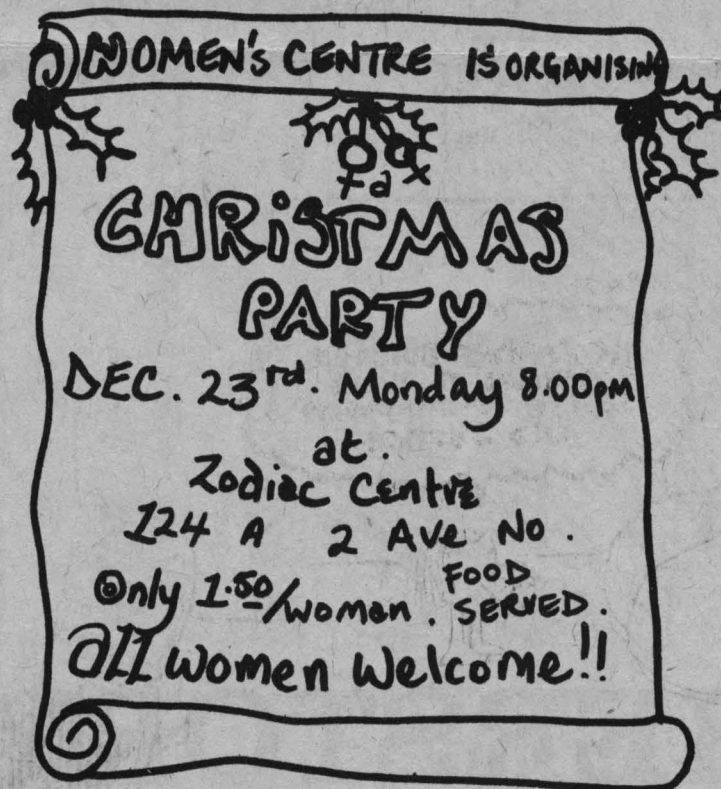 WOMEN'S CENTRE IS ORGANISING
a
CHRiSTMAS
PARTY
DEC. 23rd. Monday 8.00pm
at.
Zodiac Centre
124 A 2 AVE NO.
Only 1.50/woman. FOOD SERVED.
all women welcome!!